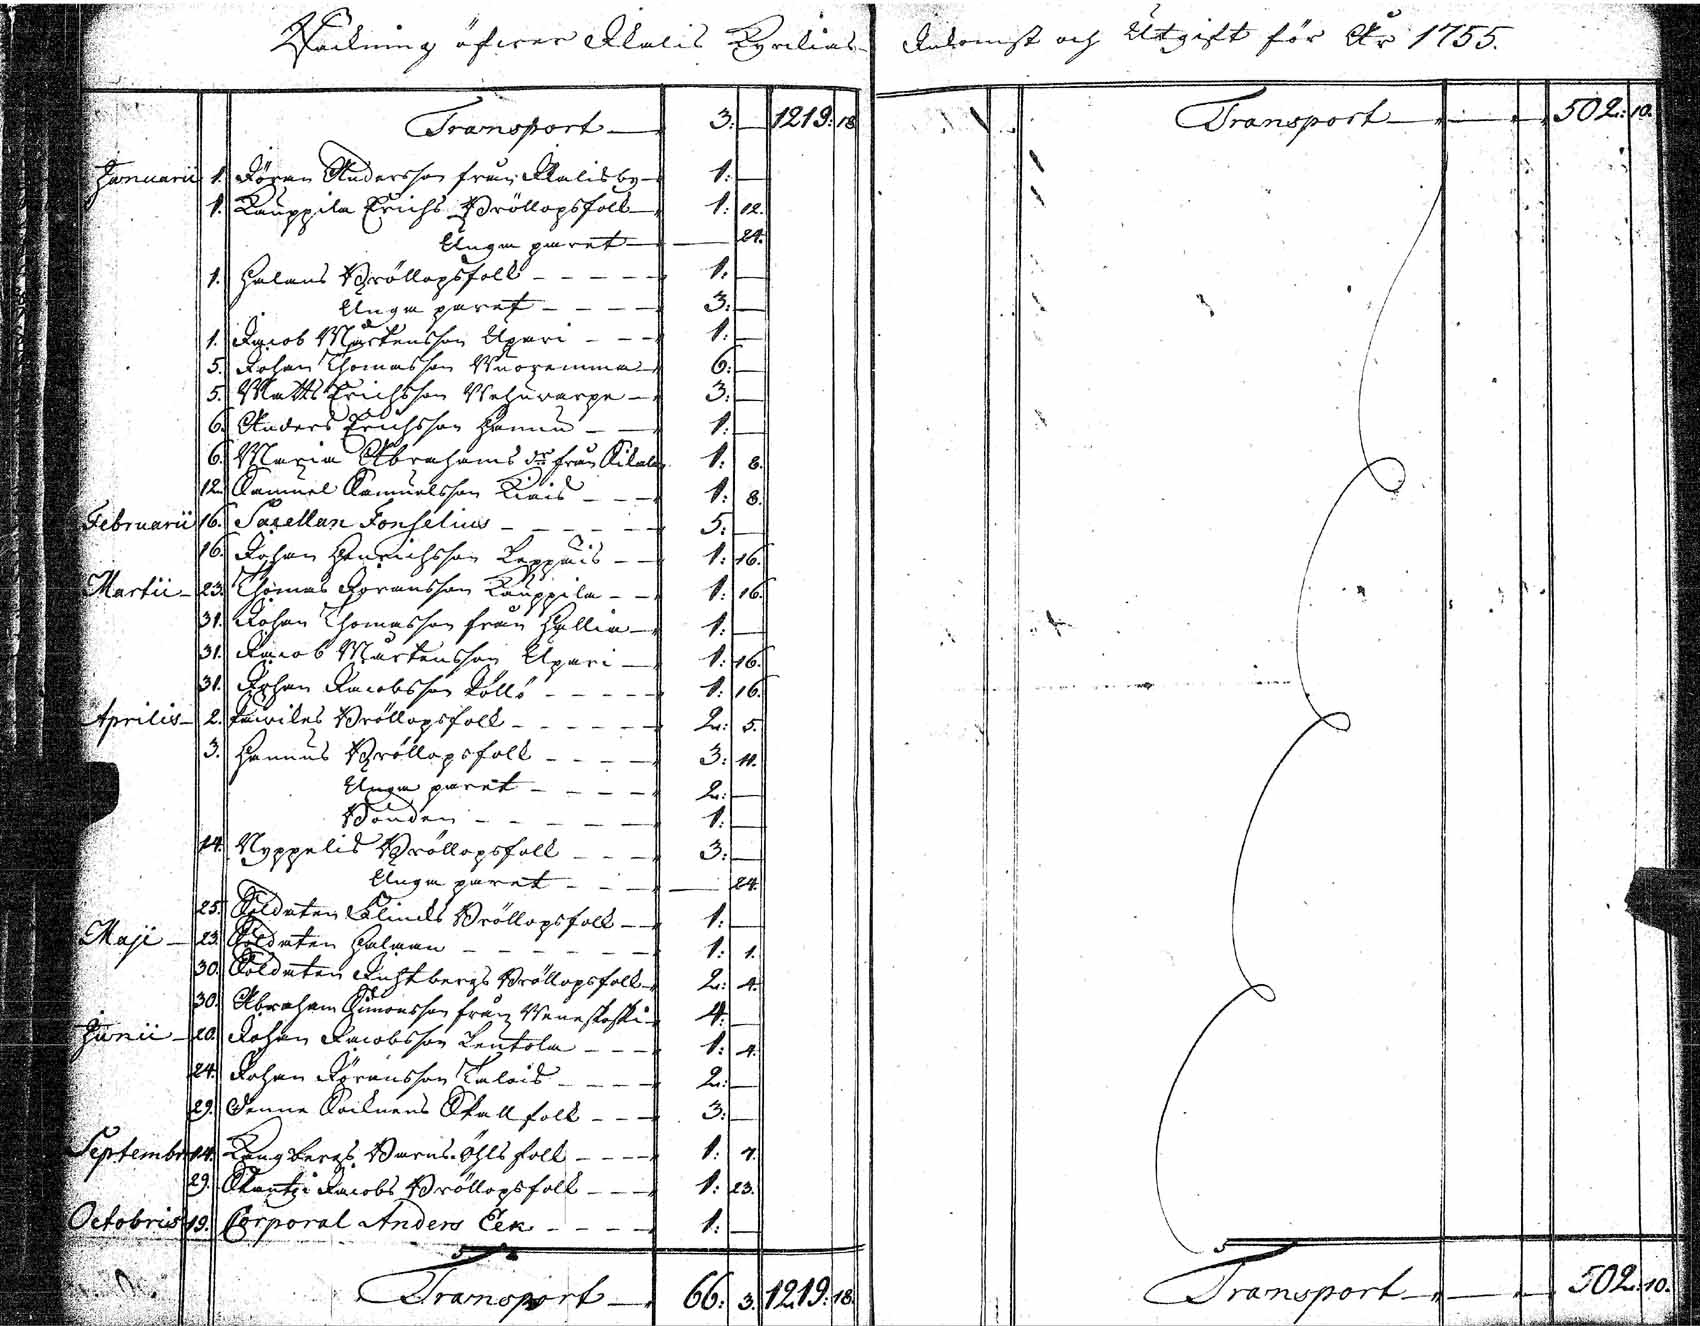 Räkning öfwer Kalis Kyrkias Inkomst och Utgift för År 1755.
Transport — 3: — 1219: 18
Januarii 1. Jöran Andersson från Kalisby — 1: —
1. Kauppila Erichs Bröllopsfolk — 1: 12.
Unga paret — — 24.
1. Halans Bröllopsfolk - - - - - 1: —
Unga paret - - - - 3: —
1. Jacob Mårtensson Upari - - - 1: —
5. Johan Thomasson Wuorenmaa — 6: —
5. Matts Erichsson — 3: —
6. Anders Erichsson Hannu - — 1: —
6. Maria Abrahams dr från 1: 8.
12. Samuel Samuelsson - - - 1: 8.
Februarii 16. Sacellan Fonselius - - - - - 5: —
16. Johan Henrichsson Leppäis - - 1: 16.
Martii — 23. Thomas Joransson Kauppila - - 1: 16.
31. Johan Thomasson från Hallia — 1: —
31. Jacob Mårtensson Upari — 1: 16.
31. Johan Jacobsson - - - - - 1: 16.
Aprilis — 2. Bröllopsfolk - - - - - 2: 5.
3. Hannus Bröllopsfolk - - - - 3: 11.
Unga paret - - - - 2: —
Bonden - - - - - 1: —
14. Nyppelis Bröllopsfolk - - - 3: —
Unga paret - - - — 24.
25. Soldaten Bröllopsfolk - — 1: —
Maji — 23. Soldaten Halman - - - - - - 1: 1.
30. Soldaten Bröllopsfolk — 2: 4.
30. Abraham Simonsson från Weneskoski — 4: —
Junii — 20. Johan Jacobsson Lentola - - - 1: 4.
24. Johan Jöransson Talois - - - - 2: —
29. Denne Socknens Skallfolk - - - 3: —
Septembr. 14. Långbergs Barns-Öhlsfolk - - - - 1: 7.
29. Jacobs Bröllopsfolk - - - 1: 23.
Octobris 19. Corporal Anders Eek - - - - 1: —
Transport — 66: 3. 1219: 18.
Transport — — — 502: 10.
Transport — — — 502: 10.